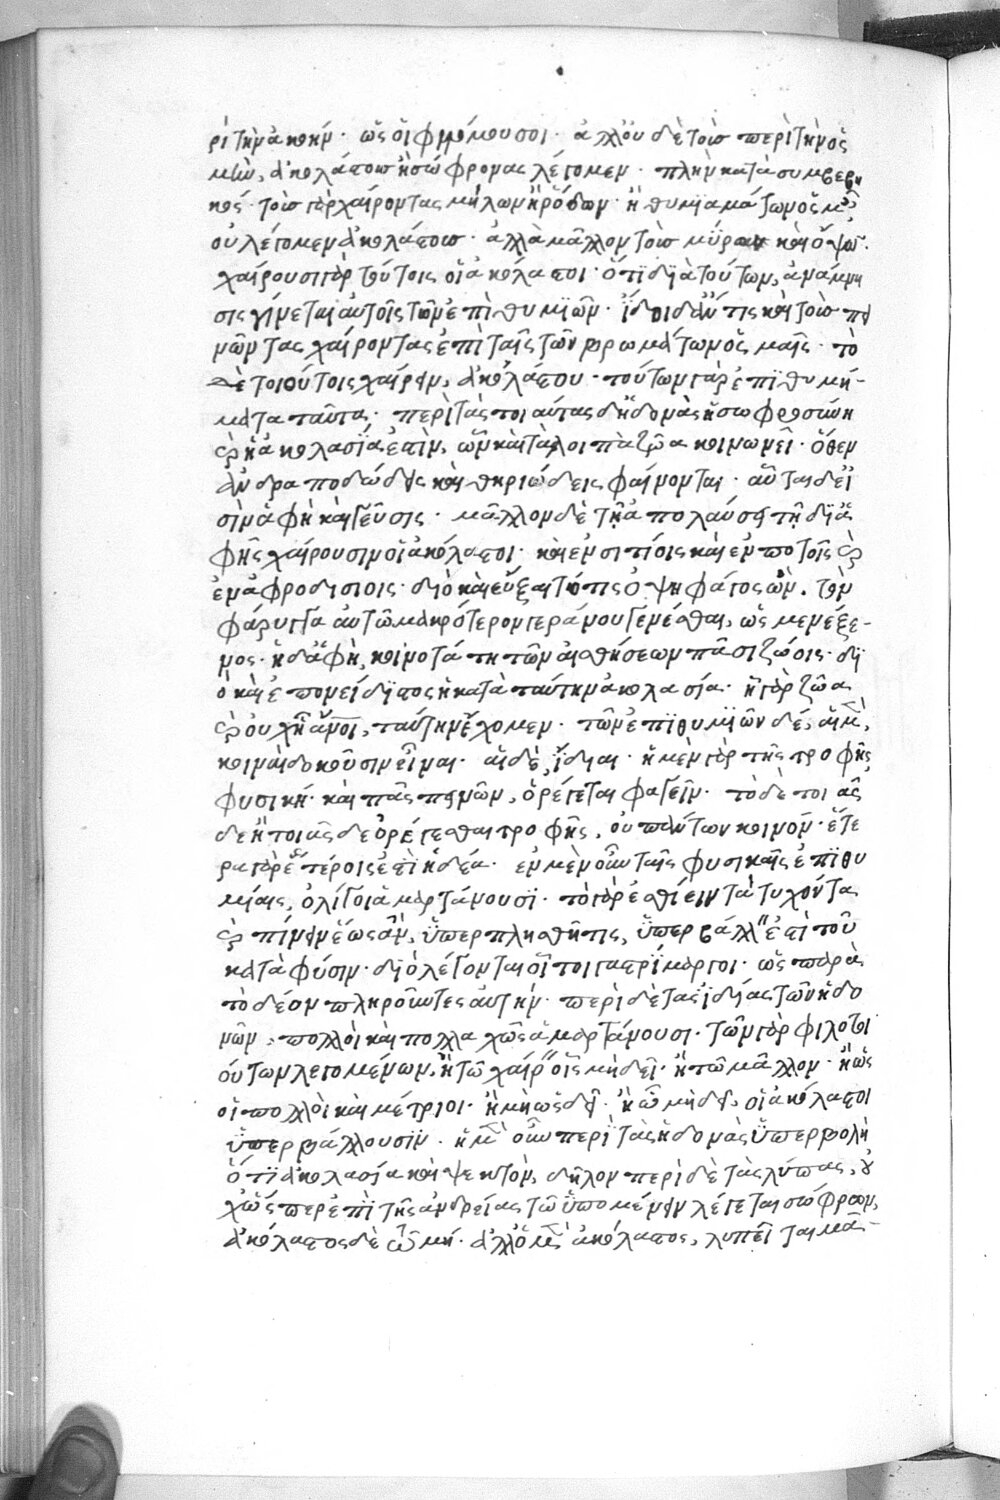 ρὶ τὴν ἀκοήν· ὡς οἱ φιλόμουσοι· ἀλλ' οὐδὲ τοὺς περὶ τὴν ὀσ
μὴν, ἀκολάστους ἢ σώφρονας λέγομεν· πλὴν κατὰ συμβεβη
κός· τοὺς γὰρ χαίροντας μήλων ἢ ῥόδων· ἢ θυμϊαμάτων ὀσμαῖς
οὐ λέγομεν ἀκολάστους· ἀλλὰ μᾶλλον τοὺς μύρων καὶ ὄψων·
χαίρουσι γὰρ τούτοις οἱ ἀκόλαστοι· ὅτι διὰ τούτων, ἀνάμνη
σις γίνεται αὐτοῖς τῶν ἐπιθυμϊῶν· ἴδοι δ' ἄν τις καὶ τοὺς πει
νῶντας χαίροντας ἐπὶ ταῖς τῶν βρωμάτων ὀσμαῖς· τὸ
δὲ τοιούτοις χαίρειν, ἀκολάστου· τούτων γὰρ ἐπιθυμή-
ματα ταῦτα· περὶ τὰς τοιαύτας δ' ἡδονὰς ἡ σωφροσύνη
καὶ ἡ ἀκολασία ἐστὶν, ὧν καὶ τὰ λοιπὰ ζῶα κοινωνεῖ· ὅθεν
ἀνδραποδώδεις καὶ θηριώδεις φαίνονται· αὗται δ' εἰ
σὶν ἁφὴ καὶ γεῦσις· μᾶλλον δὲ τῆ ἀπολαύσει τῆ δι' ἁ
φῆς χαίρουσιν οἱ ἀκόλαστοι· καὶ ἐν σιτίοις καὶ ἐν ποτοῖς καὶ
ἐν ἀφροδισίοις· διὸ καὶ εὔξατό τις ὀψηφάγος ὢν. τὸν
φάρυγγα αὐτῶ μακρότερον γεράνου γενέσθαι, ὡς μεμέξε-
μος· ἡ δ' ἁφὴ, κοινοτάτη τῶν αἰσθήσεων πᾶσι ζώοις· δι
ὃ καὶ ἐπονείδιστος ἡ κατὰ ταύτην ἀκολασία· ἧ γὰρ ζῶα
καὶ οὐχ ἧ ἄνοι, ταύτην ἔχομεν· τῶν ἐπιθυμϊῶν δὲ, αἱ μὲν,
κοιναὶ δοκοῦσιν εἶναι· αἱ δὲ, ἴδιαι· ἡ μὲν γὰρ τῆς τροφῆς
φυσική· καὶ πᾶς πεινῶν, ὀρέγεται φαγεῖν· τὸ δὲ τοιᾶς
δε ἢ τοιᾶσδε ὀρέγεσθαι τροφῆς, οὐ πάντων κοινόν· ἕτε
ρα γὰρ ἑτέροις ἐστὶ ἡδέα· ἐν μὲν οὖν ταῖς φυσικαῖς ἐπιθυ
μίαις, ὀλίγοι ἁμαρτάνουσι· τὸ γὰρ ἐσθίειν τὰ τυχόντα
καὶ πίνειν ἕως ἂν, ὑπερπλησθῆ τις, ὑπερβάλλειν ἐστὶ τοῦ
κατὰ φύσιν· διὸ λέγονται οὗτοι γαστρίμαργοι· ὡς παρὰ
τὸ δέον πληροῦντες αὐτήν· περὶ δὲ τὰς ἰδίας τῶν ἡδο
νῶν, πολλοὶ καὶ πολλαχῶς ἁμαρτάνουσι· τῶν γὰρ φιλοτοι
ούτων λεγομένων, ἢ τῶ χαίρειν οἷς μὴ δεῖ· ἢ τῶ μᾶλλον· ἢ ὡς
οἱ πολλοὶ καὶ μέτριοι· ἢ μὴ ὡς δεῖ· ἢ ὧ μὴ δεῖ, οἱ ἀκόλαστοι
ὑπερβάλλουσιν· ἡ μὲν οὖν περὶ τὰς ἡδονὰς ὑπερβολὴ
ὅτι ἀκολασία καὶ ψεκτὸν, δῆλον· περὶ δὲ τὰς λύπας, οὐ
χ' ὥσπερ ἐπὶ τῆς ἀνδρείας τῶ ὑπομένειν λέγεται σώφρων,
ἀκόλαστος δὲ ὧ μή· ἀλλ' ὁ μὲν ἀκόλαστος, λυπεῖται μᾶλ-